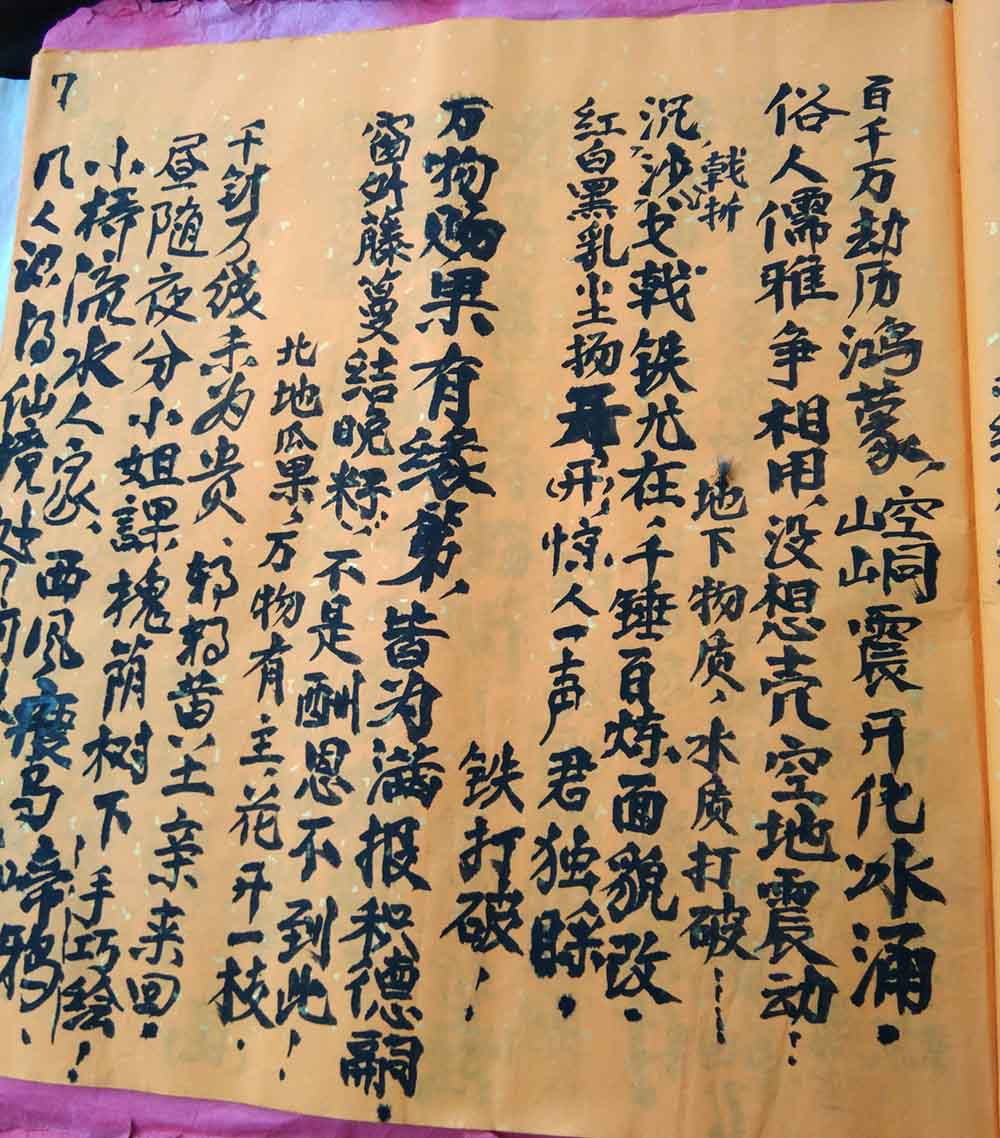 百千万劫历鸿蒙，崆峒震开化冰涌。
俗人儒雅争相用，没想壳空地震动！
地下物质，水质打破……
戟折
沉沙戈戟铁尤在，千锤百炼面貌改。
红白黑乳尘扬开（开），惊人一声君独睬。
铁打破！
万物赐果有缘第，皆为满报积德嗣。
窗外藤蔓结晚籽，不是酬恩不到此！
北地瓜果，万物有主，花开一枝。
千针万线未为贵、邦邦黄土亲来回。
昼随夜分小姐課，槐荫树下手巧绘！
小桥流水人家、西风瘦马啼鸦。
几人识得仙境处
7